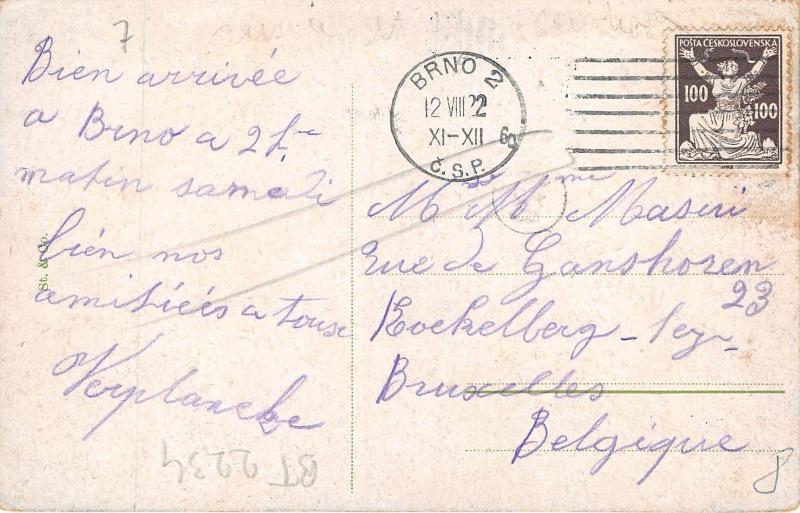 7
Bien arrivée
a Brno a 2 h
matin samedi
bien nos
amitiées a tous
Verplancke
St. & Co.
BT 2234
BRNO 2
12 VIII 22
XI-XII
6a
Č.S.P.
POŠTA ČESKOSLOVENSKÁ
100 100
Mr Mme Masui
Rue de Ganshoren
23
Koekelberg-lez-
Bruxelles
Belgique
8